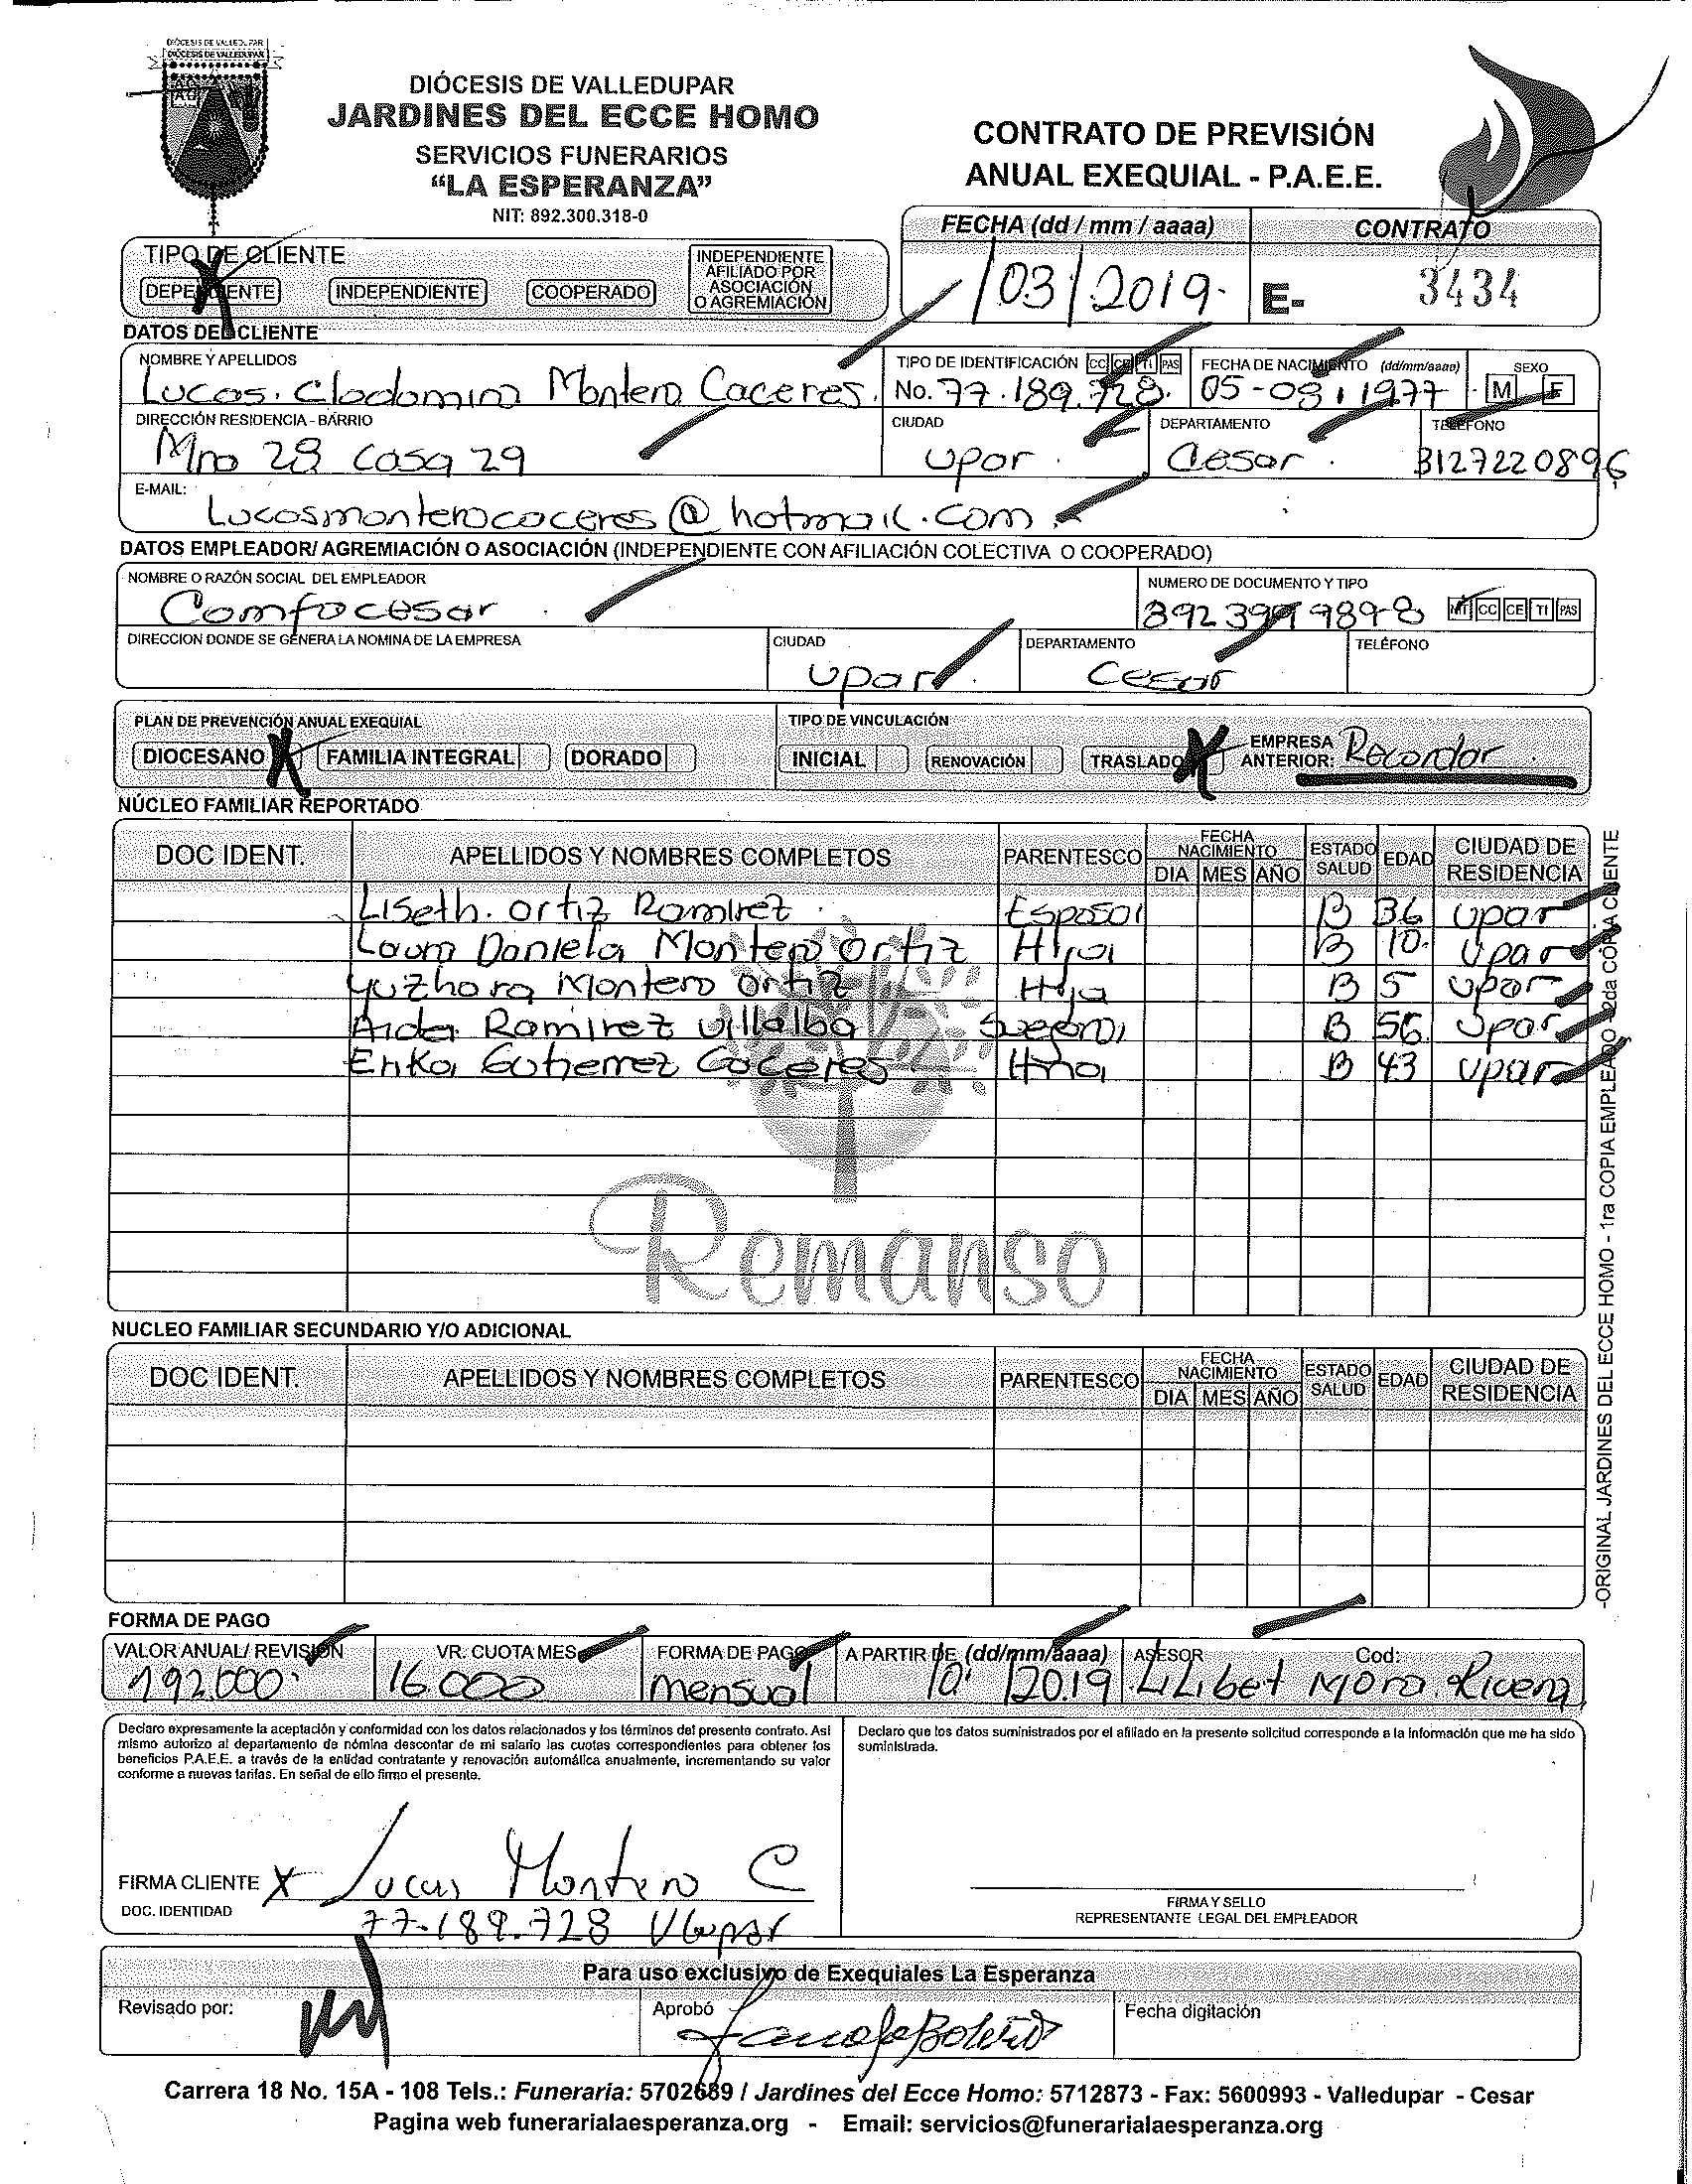 DIÓCESIS DE VALLEDUPAR
DIÓCESIS DE VALLEDUPAR
JARDINES DEL ECCE HOMO
SERVICIOS FUNERARIOS
“LA ESPERANZA”
NIT: 892.300.318-0
CONTRATO DE PREVISIÓN
ANUAL EXEQUIAL - P.A.E.E.
FECHA (dd / mm / aaaa) CONTRATO
/03/2019. E- 3434
TIPO DE CLIENTE
DEPENDIENTE INDEPENDIENTE COOPERADO INDEPENDIENTE AFILIADO POR ASOCIACIÓN O AGREMIACIÓN
DATOS DEL CLIENTE
NOMBRE Y APELLIDOS TIPO DE IDENTIFICACIÓN CC CE TI PAS FECHA DE NACIMIENTO (dd/mm/aaaa) SEXO
Lucas. Clodomiro Montero Caceres. No. 77.189.728. 05-08-1977 M F
DIRECCIÓN RESIDENCIA - BARRIO CIUDAD DEPARTAMENTO TELEFONO
Mno 28 casa 29 Upar. Cesar. 3127220896
E-MAIL:
Lucasmonterocaceres@hotmail.com
DATOS EMPLEADOR/ AGREMIACIÓN O ASOCIACIÓN (INDEPENDIENTE CON AFILIACIÓN COLECTIVA O COOPERADO)
NOMBRE O RAZÓN SOCIAL DEL EMPLEADOR NUMERO DE DOCUMENTO Y TIPO
Comfacesar 892399989-8 NIT CC CE TI PAS
DIRECCION DONDE SE GENERA LA NOMINA DE LA EMPRESA CIUDAD DEPARTAMENTO TELÉFONO
Upar. Cesar
PLAN DE PREVENCIÓN ANUAL EXEQUIAL TIPO DE VINCULACIÓN
DIOCESANO X FAMILIA INTEGRAL DORADO INICIAL RENOVACIÓN TRASLADO X EMPRESA ANTERIOR: Recordar
NÚCLEO FAMILIAR REPORTADO
DOC IDENT. APELLIDOS Y NOMBRES COMPLETOS PARENTESCO FECHA NACIMIENTO DIA MES AÑO ESTADO SALUD EDAD CIUDAD DE RESIDENCIA
Liseth. Ortiz Ramirez. Esposa B 36 Upar
Laura Daniela Montero Ortiz Hija B 10. Upar
Yuzhara Montero Ortiz Hija B 5 Upar
Aida Ramirez Villalba Suegra B 56 Upar
Erika Gutierrez Caceres Hna B 43 Upar
Remanso
NUCLEO FAMILIAR SECUNDARIO Y/O ADICIONAL
DOC IDENT. APELLIDOS Y NOMBRES COMPLETOS PARENTESCO FECHA NACIMIENTO DIA MES AÑO ESTADO SALUD EDAD CIUDAD DE RESIDENCIA
-ORIGINAL JARDINES DEL ECCE HOMO - 1ra COPIA EMPLEADO - 2da COPIA CLIENTE
FORMA DE PAGO
VALOR ANUAL/ REVISIÓN VR. CUOTA MES FORMA DE PAGO A PARTIR DE (dd/mm/aaaa) ASESOR Cod:
192.000 16.000 mensual 10 /2019 Lilibet Mora Rivera
Declaro expresamente la aceptación y conformidad con los datos relacionados y los términos del presente contrato. Asi
mismo autorizo al departamento de nómina descontar de mi salario las cuotas correspondientes para obtener los
beneficios P.A.E.E. a través de la entidad contratante y renovación automática anualmente, incrementando su valor
conforme a nuevas tarifas. En señal de ello firmo el presente.
Declaro que los datos suministrados por el afiliado en la presente solicitud corresponde a la información que me ha sido
suministrada.
FIRMA CLIENTE X Lucas Montero C
DOC. IDENTIDAD 77.189.728 V/upar
FIRMA Y SELLO
REPRESENTANTE LEGAL DEL EMPLEADOR
Para uso exclusivo de Exequiales La Esperanza
Revisado por: Aprobó Fecha digitación
Carrera 18 No. 15A - 108 Tels.: Funeraria: 5702689 / Jardines del Ecce Homo: 5712873 - Fax: 5600993 - Valledupar - Cesar
Pagina web funerarialaesperanza.org - Email: servicios@funerarialaesperanza.org